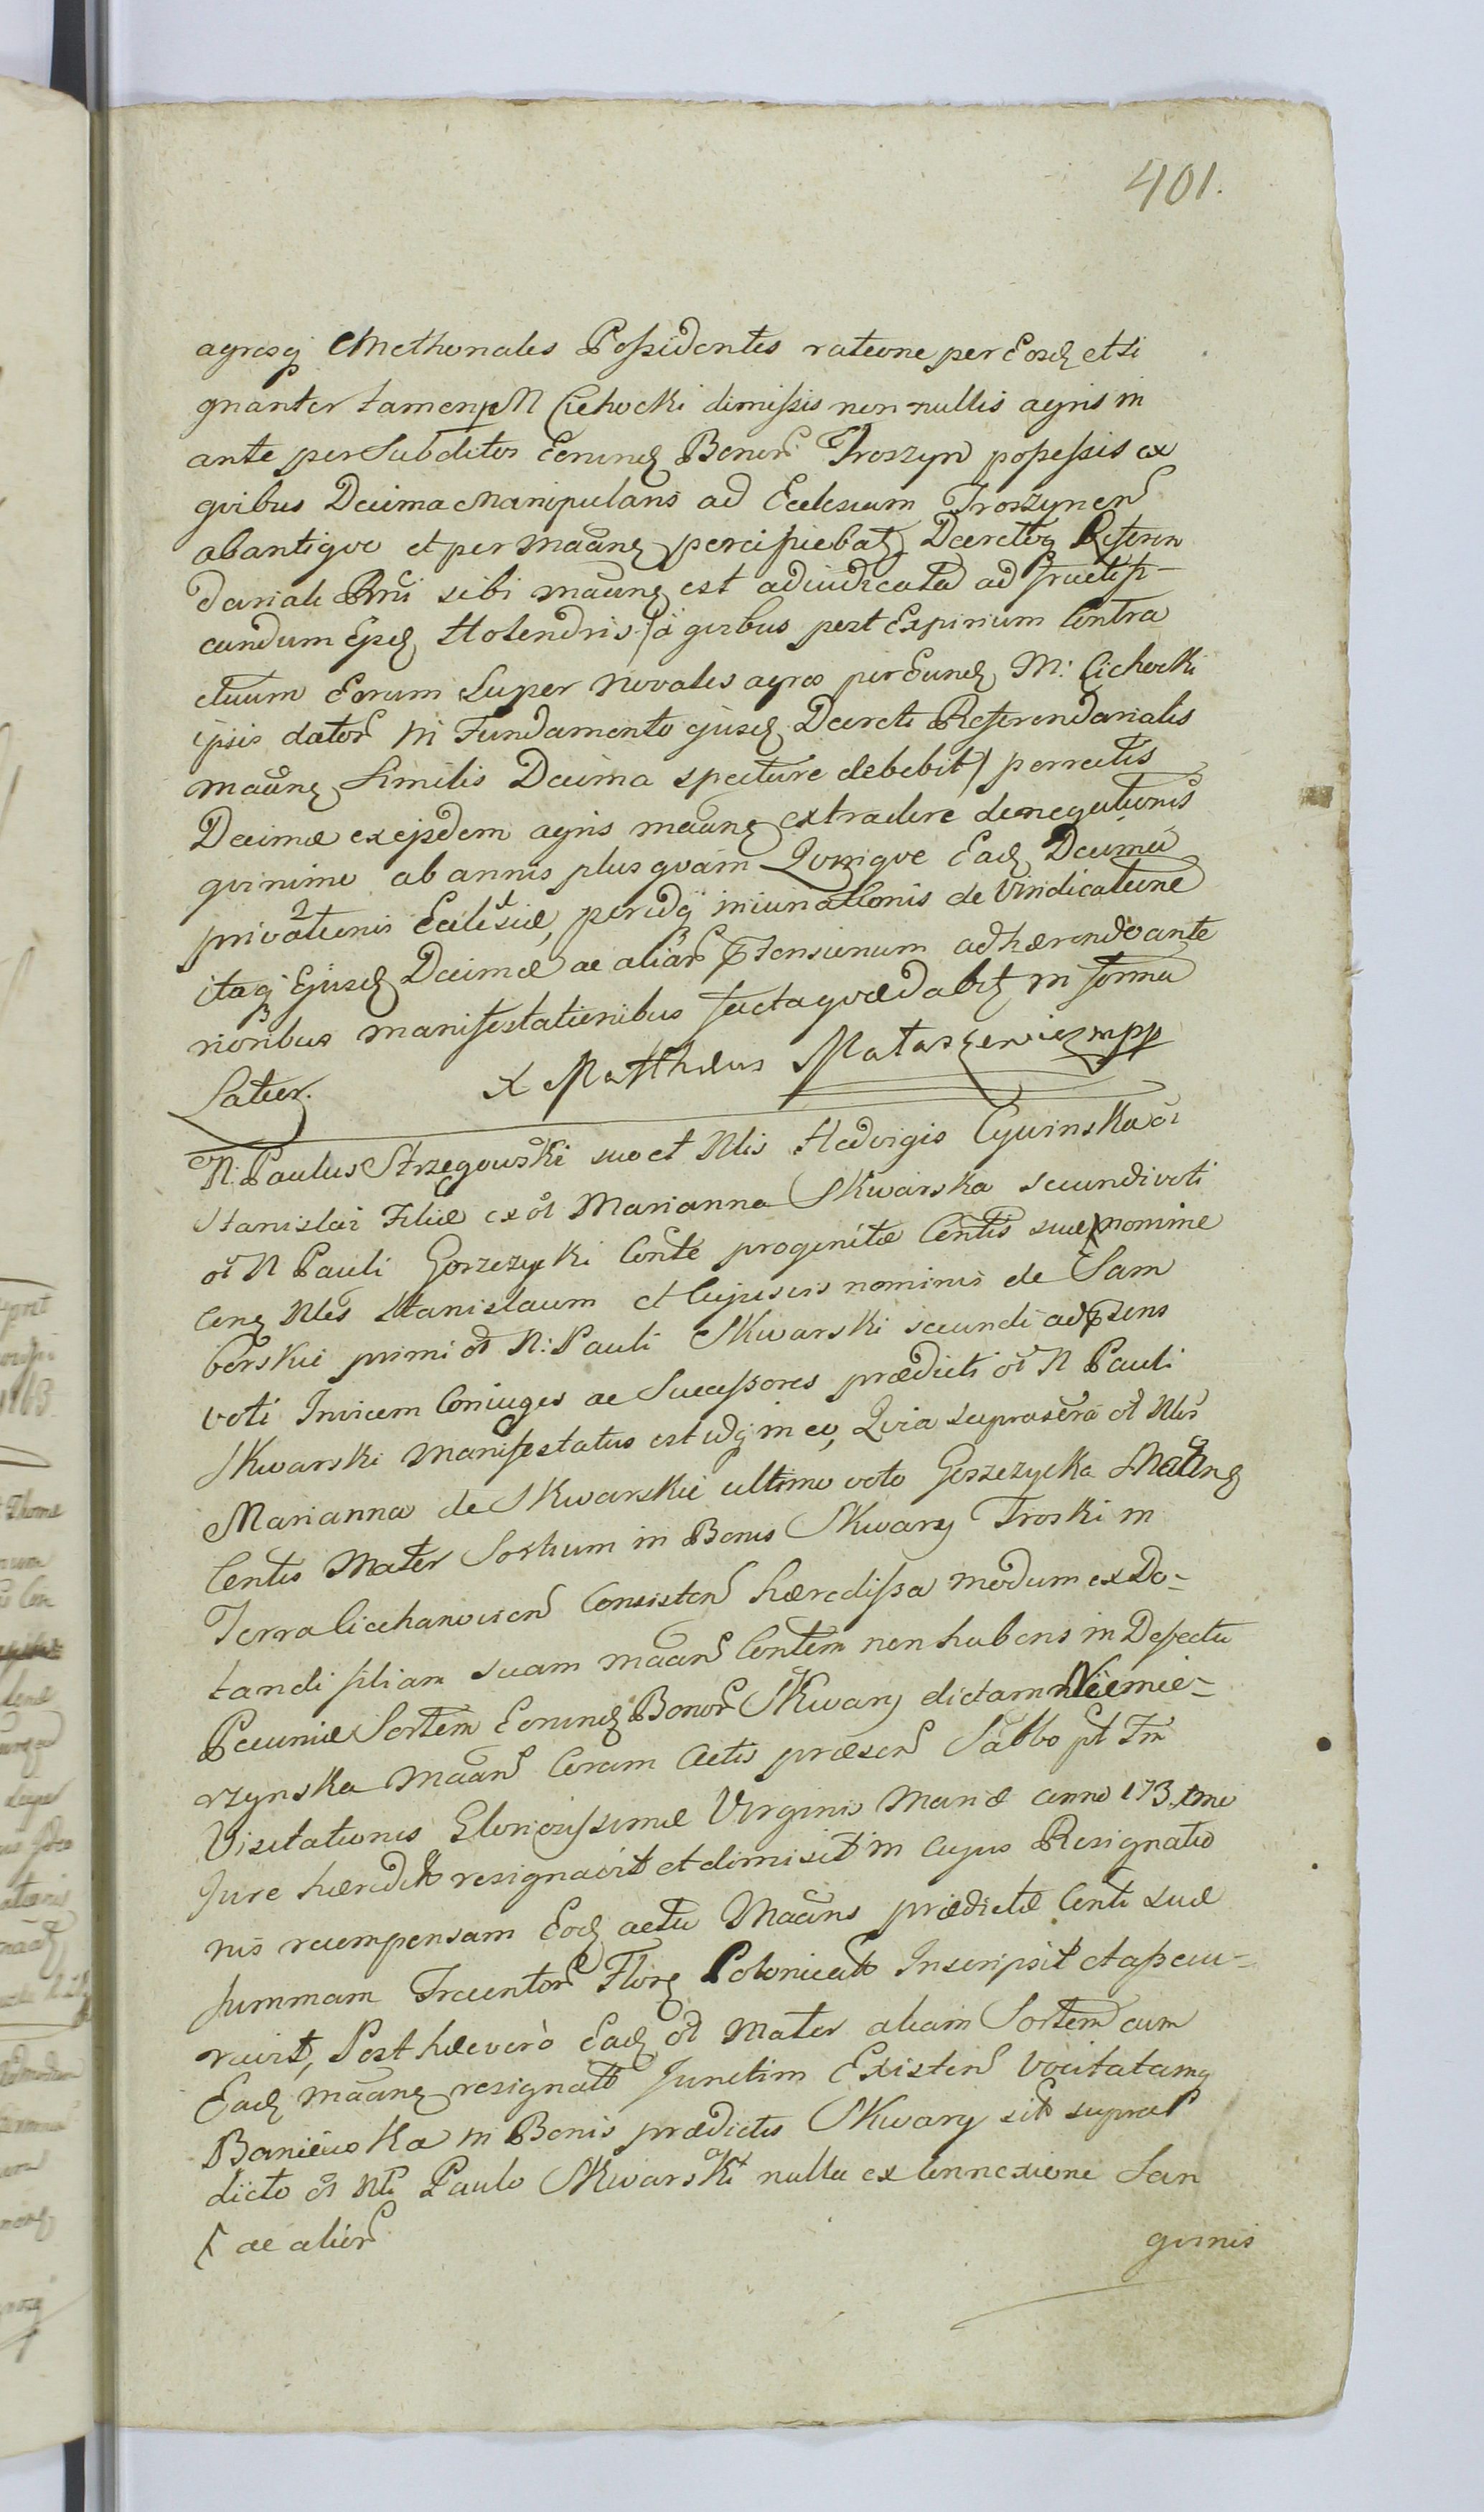 401.
agrosq Cmethonales Possidentes ratione per Eosd et si
gnanter tamen p M Cichocki dimissis non nullis agris in
ante per Subditos Eorund Bonor Troszyn possessis ex
quibus Decima Manipularis ad Ecclesiam Troszynen
ab antiquo et per Maãnę percipiebatz Decretoq Referen
dariali Pnti sibi maãnę est adiudicata ad fructifi-
candum Ejsd Holendris (à quibus post Expirium Contra
ctuum Eorum Super Novales agros per Eund M: Cichocki
ipsis dator in Fundamento ejusd Decreti Referendarialis
maãnę Similis Decima spectare debebit) perceptis
Decimæ ex ejsdem agris maãnę extradere denegationis
quinimo ab annis plus quam Quinque Ead Decima
privationis Ecclesiæ, peridq iniunationis de Vindicatione
itaq Ejusd Decimæ ac aliar ptensionum adhærendo ante
rioribus manifestationibus facta quæ dabitz in forma
Latior. X Matthæus Mataszewicz mpp
N. Paulus Strzegowski suo et Nlis Hedvigis Cywinska oi
Stanislai Filiæ ex oi Marianna Skwarska secundi voti
oi N Pauli Gorzezycki Conte progenitæ Centis suæ nomine
Cenę Nles Stanislaum et Cujusvis nominis de Sam
borskie primi oi N: Pauli Skwarski secundi ad psens
voti Invicem Coniuges ac Successores prædicti oi N Pauli
Skwarski manifestatus est idq in eo, Quia suprascra oi Nlis
Marianna de Skwarskie ultimo voto Gorzezycka Maãnę
Centis Mater Sortium in Bonis Skwary Troski in
Terra Ciechanovien Consisten hæredissa modum ex Do-
tandi filiam suam maãn Centem non habens in Defectu
Pecuniæ Sortem Eorund Bonor Skwary dictam Niemie-
rzynska Maãn Coram Actis præsen Sabbo pt Fm
Visitationis Gloriosissimæ Virginis Mariæ anno 173 tmo
Jure hæredit resignavit et dimisit in cujus Resignatio
nis recompensam Eod actu Maãns prædictæ Centi suæ
summam Trecentor Flor Polonicalt Inscripsit et assecu-
ravit, Post hæc verò Ead oi Mater aliam Sortem cum
Ead maãnę resignalt Junctim Existen Vocitatamq
Baniewska in Bonis prædictis Skwary sitt supra
dicto oi Nli Paulo Skwarski nulla ex Connexione San
ac alior
guinis